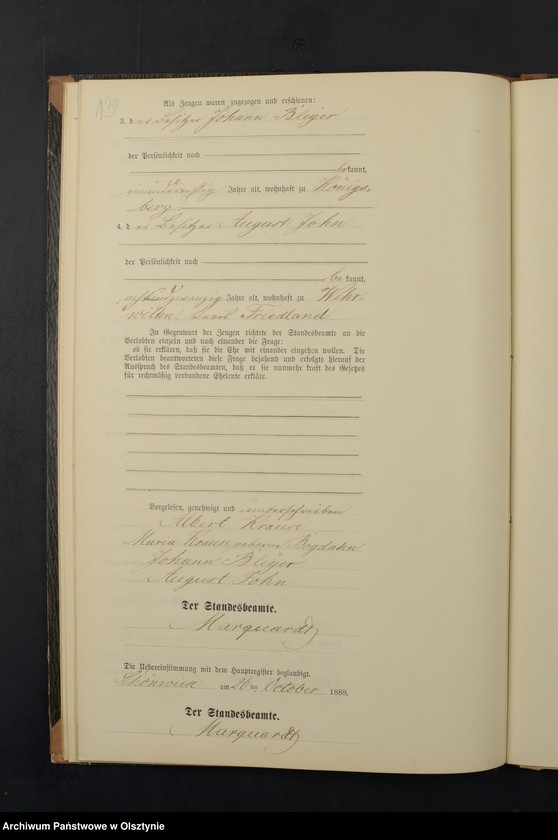 Als Zeugen waren zugezogen und erschienen:
3. der Besitzer Johann Bleyer
der Persönlichkeit nach
bekannt,
einunddreißig Jahre alt, wohnhaft zu Königs-
berg
4. der Besitzer August John
der Persönlichkeit nach
bekannt,
achtundzwanzig Jahre alt, wohnhaft zu Wehr-
wilten, Friedland
In Gegenwart der Zeugen richtete der Standesbeamte an die
Verlobten einzeln und nach einander die Frage:
ob sie erklären, daß sie die Ehe mit einander eingehen wollen. Die
Verlobten beantworteten diese Frage bejahend und erfolgte hierauf der
Ausspruch des Standesbeamten, daß er sie nunmehr kraft des Gesetzes
für rechtmäßig verbundene Eheleute erkläre.
Vorgelesen, genehmigt und unterschrieben
Albert Krause
Maria Krause geborne Bogdahn
Johann Bleyer
August John
Der Standesbeamte.
Marquardt
Die Uebereinstimmung mit dem Hauptregister beglaubigt.
Schönwiese am 26ten October 1888.
Der Standesbeamte.
Marquardt
Archiwum Państwowe w Olsztynie